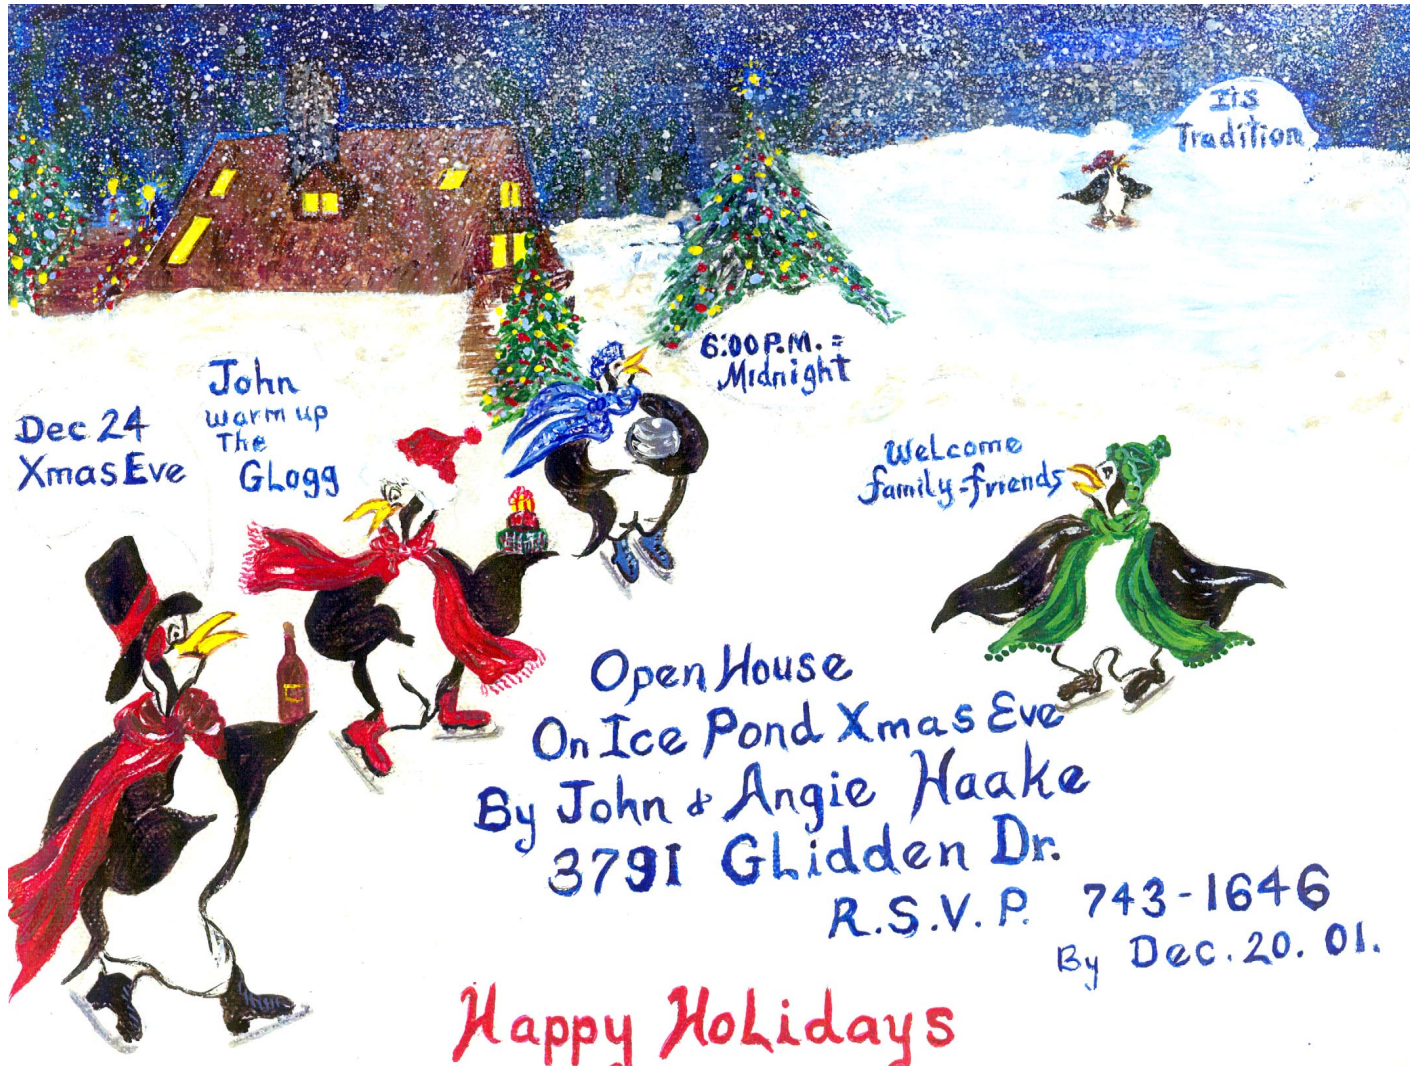 Its
Tradition
6:00 P.M. =
Midnight
John
warm up
The
Glogg
Dec 24
Xmas Eve
Welcome
family-friends
Open House
On Ice Pond Xmas Eve
By John & Angie Haake
3791 Glidden Dr.
R.S.V.P. 743-1646
By Dec. 20. 01.
Happy Holidays